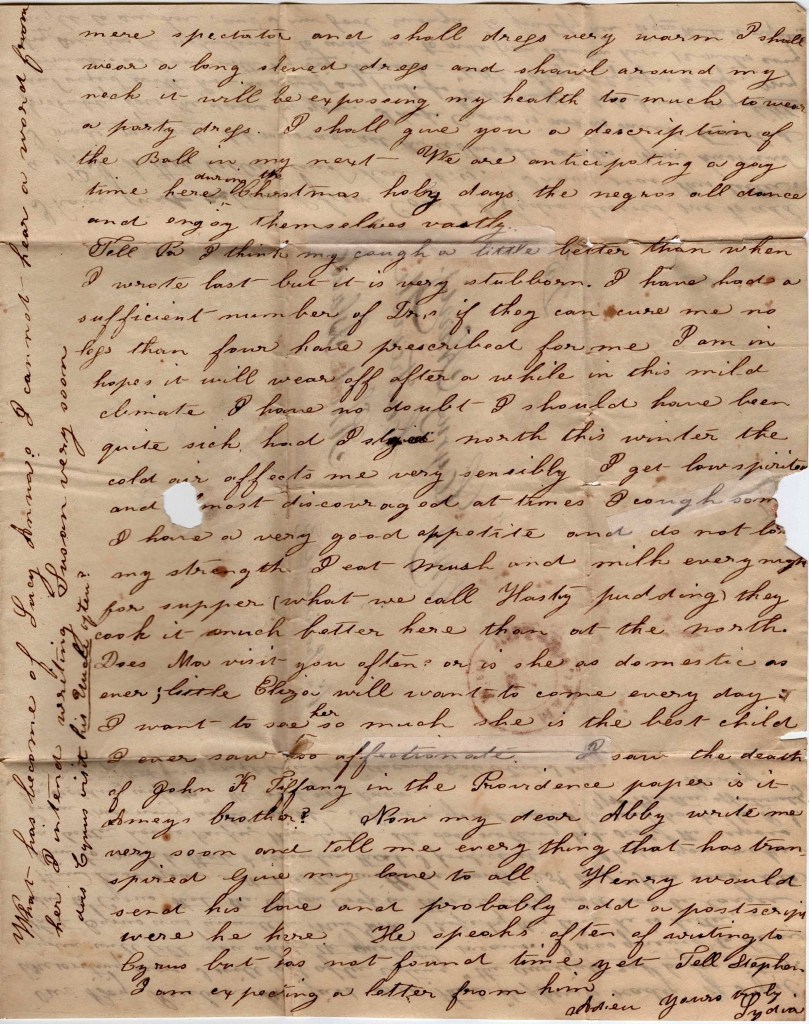 mere spectator and shall dress very warm I shall
wear a long sleved dress and shawl around my
neck it will be exposing my health too much to wear
a party dress. I shall give you a description of
the Ball in my next - We are anticipating a gay
time here during the Christmas holy days the negros all dance
and enjoy themselves vastly.
Tell Pa I think my cough a little better than when
I wrote last but it is very stubborn. I have had a
sufficient number of Drs if they can cure me no
less than four have prescribed for me I am in
hopes it will wear off after a while in this mild
climate I have no doubt I should have been
quite sick had I north this winter the
cold air affects me very sensibly I get low spirited
and most discouraged at times I cough som
I have a very good appetite and do not los
my strength I eat Mush and milk every nigh
for supper (what we call Hasty pudding) they
cook it much better here than at the north.
Does Ma visit you often? or is she as domestic as
ever; little Eliza will want to come every day.
I want to see her so much she is the best child
I ever saw too affectionate. I saw the death
of John K Tiffany in the Providence paper is it
Ameys brother? Now my dear Abby write me
very soon and tell me everything that has tran
spired Give my love to all Henry would
send his love and probably add a postscrip
were he here He speaks often of writing to
Cyrus but has not found time yet Tell Stephen
I am expecting a letter from him
Adieu yours truly
Lydia
What has become of Lucy Anna? I cannot hear a word from
her I intend writing Susan very soon
does Cyrus visit his Uncle often?